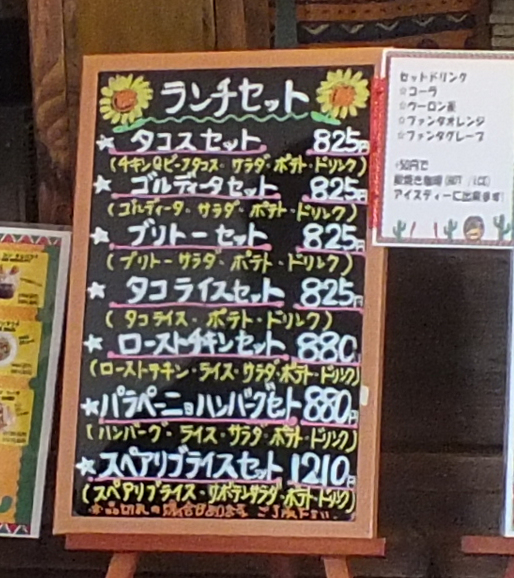 ランチセット
☆タコスセット 825円
(チキン&ビーフタコス・サラダ・ポテト・ドリンク)
☆ゴルディータセット 825円
(ゴルディータ・サラダ・ポテト・ドリンク)
☆ブリトーセット 825円
(ブリトー・サラダ・ポテト・ドリンク)
☆タコライスセット 825円
(タコライス・ポテト・ドリンク)
☆ローストチキンセット 880円
(ローストチキン・ライス・サラダ・ポテト・ドリンク)
☆ハラペーニョハンバーグセット 880円
(ハンバーグ・ライス・サラダ・ポテト・ドリンク)
☆スペアリブライスセット 1210円
(スペアリブライス・サボテンサラダ・ポテト・ドリンク)
※品切れの場合があります ご了承下さい
セットドリンク
☆コーラ
☆ウーロン茶
☆ファンタオレンジ
☆ファンタグレープ
+50円で
炭焼き珈琲(HOT/ICE)
アイスティーに出来ます